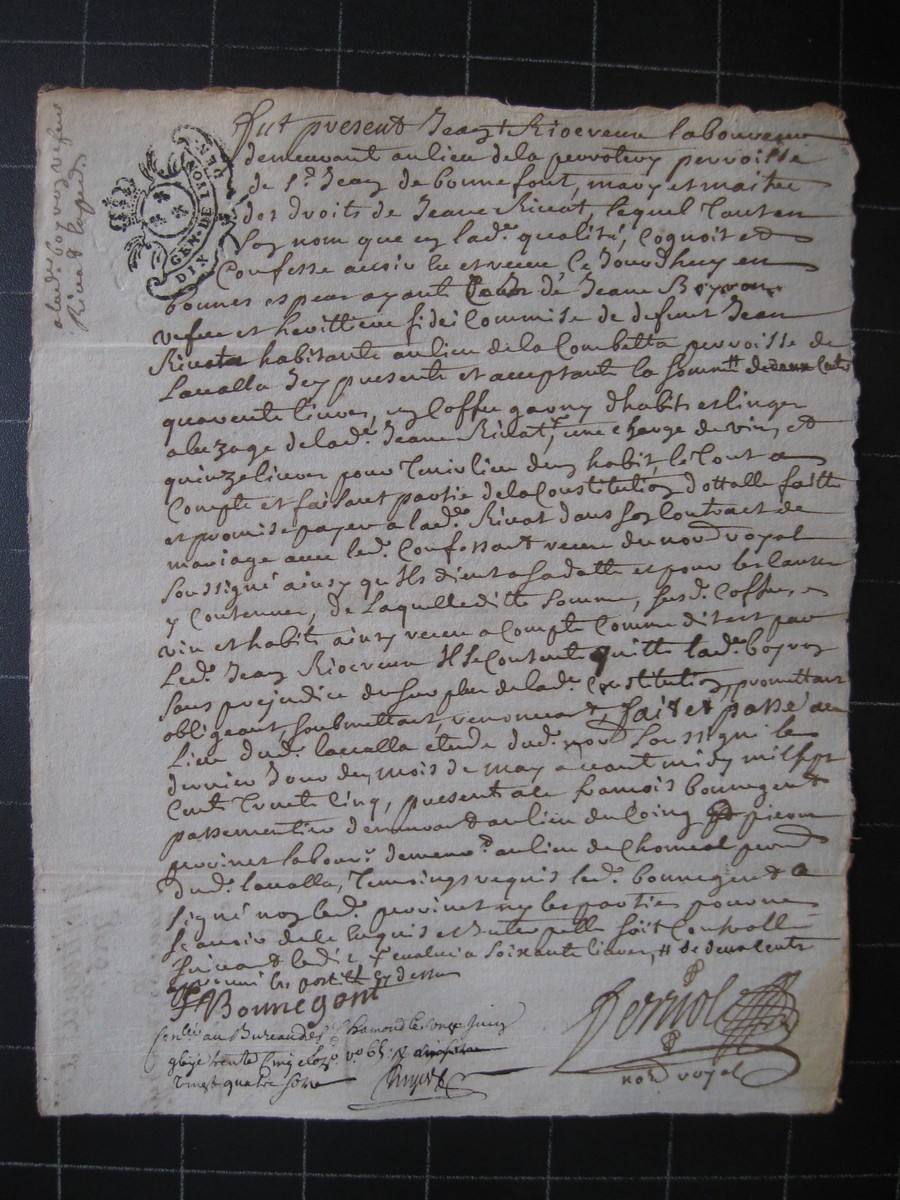 a lad. boyron vefve
Rivat & layede
GEN. DE LION
DIX DEN.
fut present Jean Rioereux laboureur
demeurant au lieu de la perrotiery perroisse
de St. Jean de bonnefont, mary et maitre
des droits de Jeane Rivat, lequel tant en
son nom que en lad. qualité, Cognoit et
Confesse avoir eu et receu Ce Jourdhuy en
bonnes especes ayant Cours de Jeane Boyron
vefve et herittiere fidei Commise de defunt Jean
Rivat habitante au lieu de la Combetta perroisse de
Lavalla Icy presente et acceptant la somme # de deux Cents
quarente livres, un Coffre garny dhabits et linges
a lezage de lad. Jeane Rivat, une charge de vin, et
quinze livres pour tenir lieu dun habit, le tout a
Compte et faisant partie de la Constitution dottalle faitte
et promise payer a lad. Rivat dans son Contract de
mariage avec led. Confessant receu du nore. royal
soussigné ainsy quils dient a sa datte et pour les Causes
y Contenues, de Laquelle ditte somme, susd. Coffre,
vin et habit ainsy receu a Compte Comme dit est par
Led. Jean Rioereux Il se Contente quitte lad. boyron
sans prejudice du surplus de lad. Constitution, promettant
obligeant, soubmettant, renonceant, fait et passé au
Lieu dud. lavalla etude dud. nore. soussigné le
dernier Jour du mois de may avant midy mil sept
Cent trente Cinq, presents a ce francois bonnegent
passementier demeurant au lieu du Coing & pierre
perrinet labour. demeur. au lieu de Chomeal perroisse
dud. lavalla, temoings requis led. bonnegent a
signé non led. perrinet ny les parties pour ne
scavoir de ce enquis et Interpellés soit Controllé
suivant ledit, evalué a soixante livres, # de deux Cents
approuvé les postilles cy dessus
F Bonnegent
Conllé au Bureau de St Chamond le onze Juin
trente Cinq
vingt quatre sols
Ferriol
nore. royal